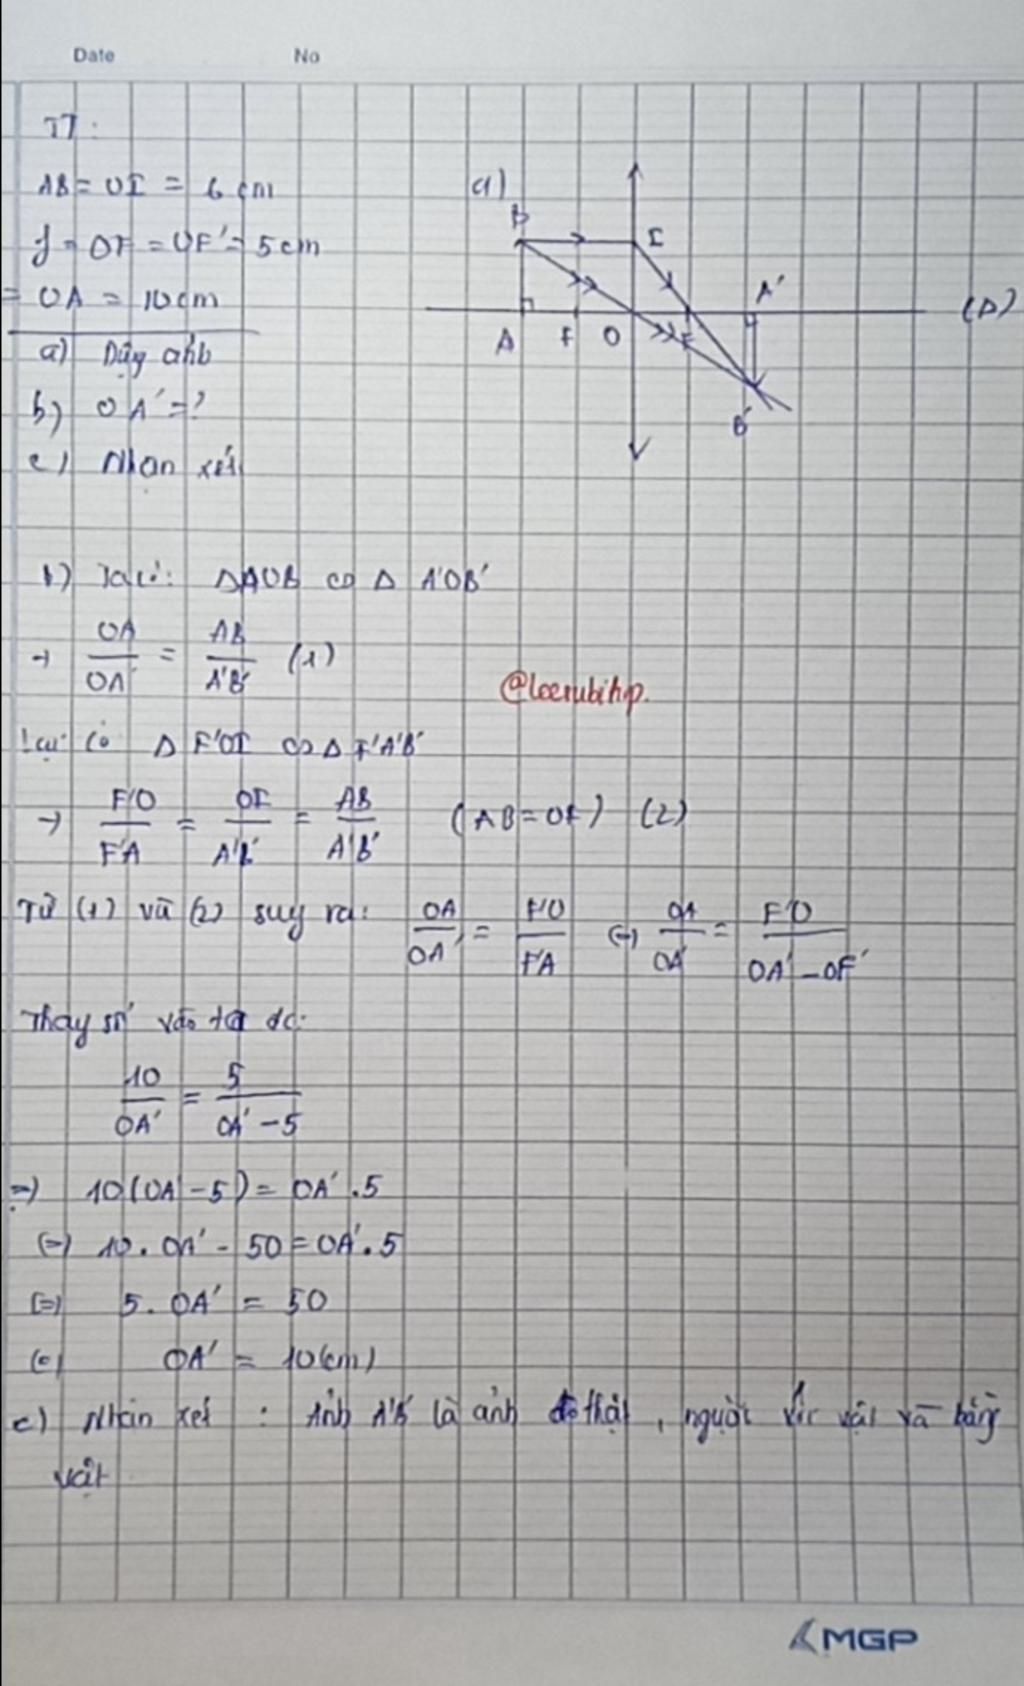 Date No
TT:
AB = OI = 6 cm
f = OF = OF' = 5 cm
= OA = 10 cm
a) Dựng ảnh
b) OA' = ?
c) Nhận xét
a)
B I A' (Δ)
A F O F'
B'
b) Ta có: ΔAOB ∽ Δ A'OB'
→ OA/OA' = AB/A'B' (1)
@leerubihp.
Lại có Δ F'OI ∽ Δ F'A'B'
→ F'O/F'A' = OI/A'B' = AB/A'B' (AB = OI) (2)
Từ (1) và (2) suy ra: OA/OA' = F'O/F'A' (=) OA/OA' = F'O/OA' - OF'
Thay số vào ta đc:
10/OA' = 5/OA' - 5
=) 10(OA' - 5) = OA'.5
(=) 10. OA' - 50 = OA'.5
(=) 5. OA' = 50
(=) OA' = 10(cm)
c) Nhận xét : Ảnh A'B' là ảnh thật, ngược với vật và bằng
vật
MGP